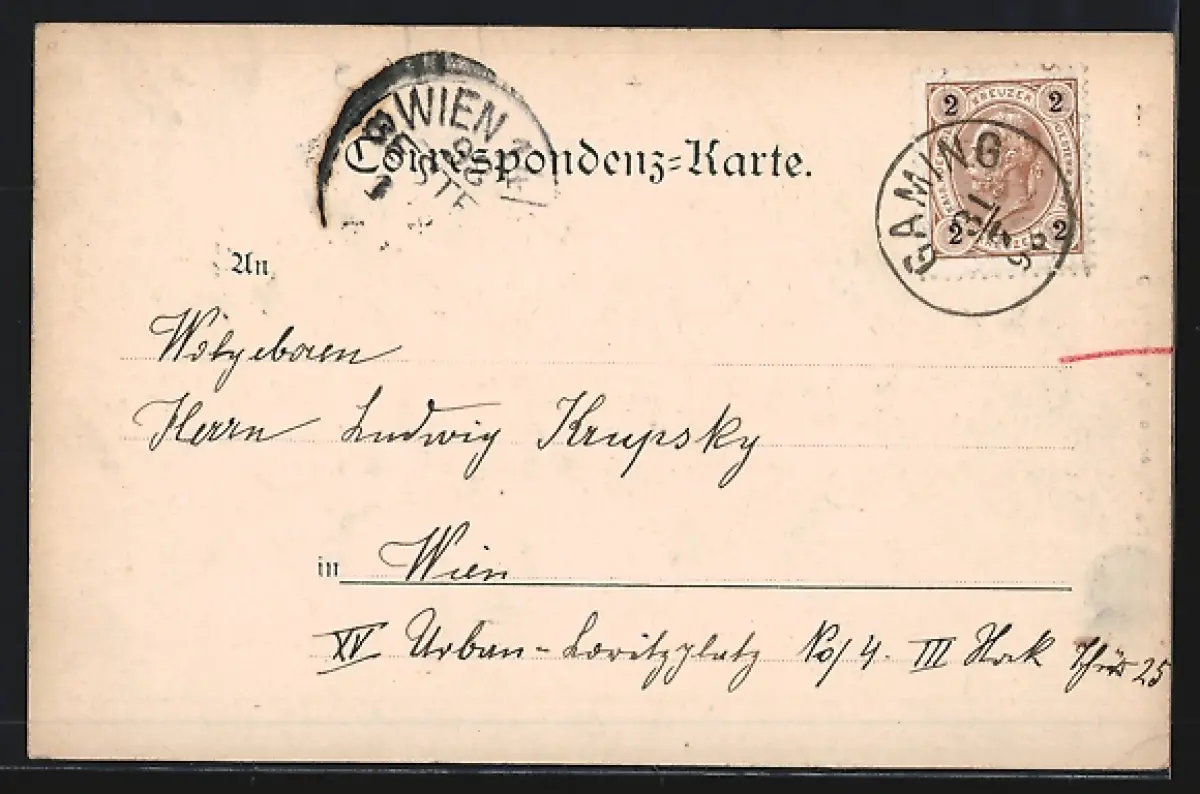 WIEN
Correspondenz-Karte.
2 KREUZER 2
2 KREUZER 2
GAMING
31
An
Wolgeboren
Herrn Ludwig Krupsky
in Wien
XV Urban-Loritzplatz No/4 III Stock Thür 25